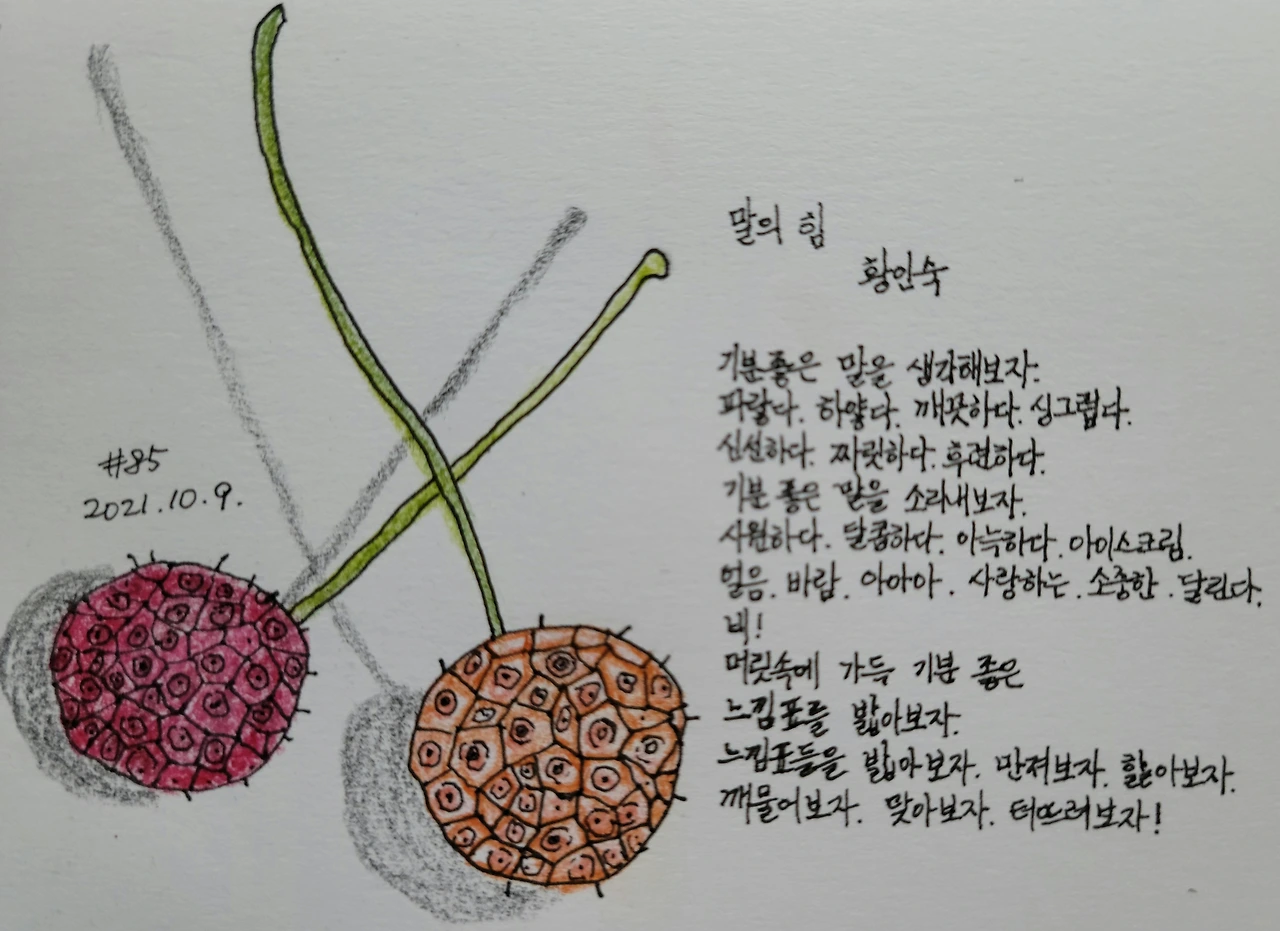 말의 힘
황인숙
기분좋은 말을 생각해보자.
파랗다. 하얗다. 깨끗하다. 싱그럽다.
신선하다. 짜릿하다. 후련하다.
기분 좋은 말을 소리내보자.
시원하다. 달콤하다. 아늑하다. 아이스크림.
얼음. 바람. 아아아. 사랑하는. 소중한. 달린다.
비!
머릿속에 가득 기분 좋은
느낌표를 밟아보자.
느낌표들을 밟아보자. 만져보자. 핥아보자.
깨물어보자. 맞아보자. 터뜨려보자!
#85
2021.10.9.